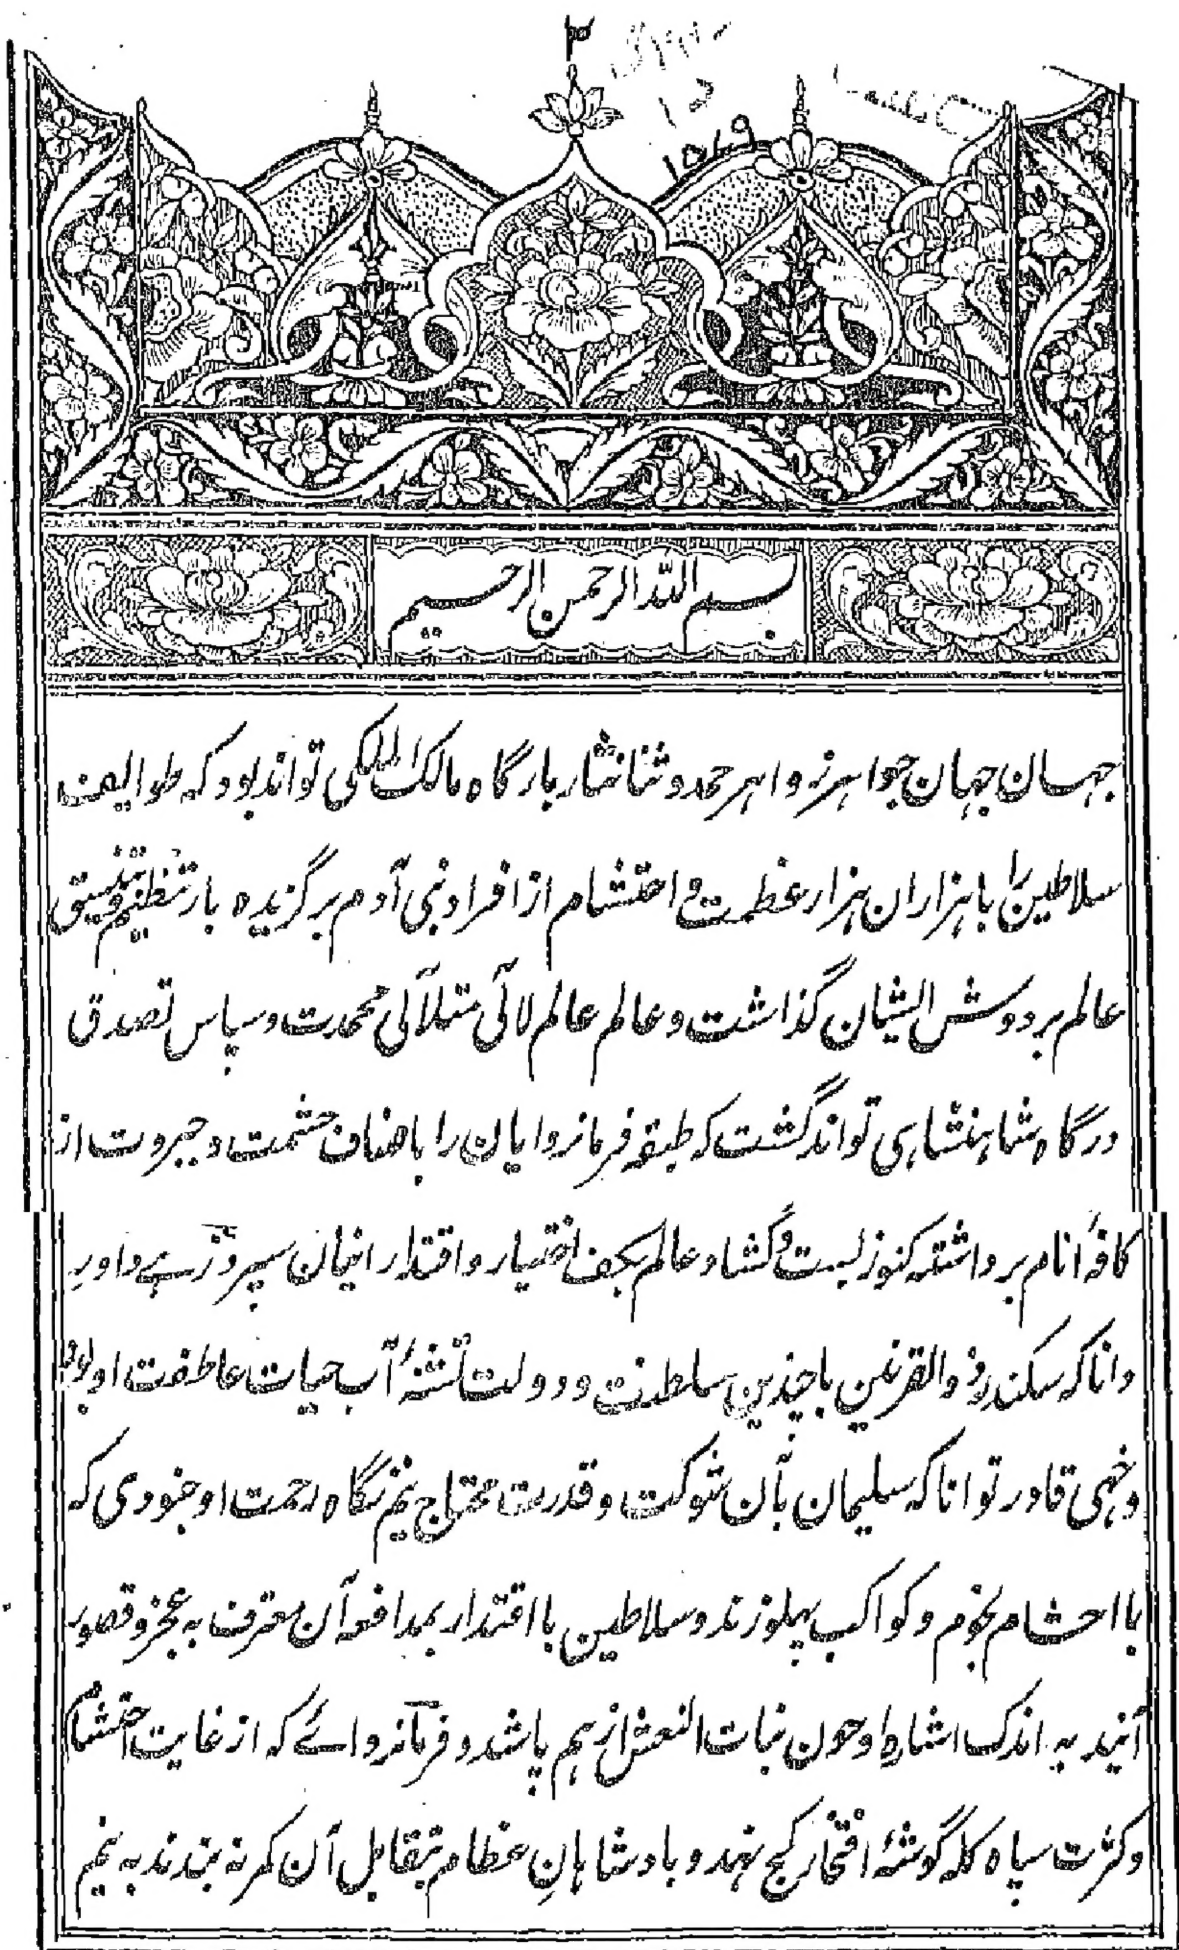 ۲
۱۵۱۹
بسم الله الرحمن الرحیم
جہان جہان جواہر زواہر حمد و ثنا نثار بارگاہ مالک الملکی تواند بود کہ طوایف
سلاطین را با ہزاران ہزار عظمت و احتشام از افراد بنی آدم برگزیدہ بار تنظیم و تنسیق
عالم بر دوش ایشان گذاشت و عالم عالم لآلی متلآلی محمدت و سپاس تصدق
درگاہ شاہنشاہی تواند گشت کہ طبقہ فرمانروایان را باصناف حشمت و جبروت از
کافۂ انام برداشتہ کنوز بست و گشاد عالم بکف اختیار و اقتدار اینان سپرد زہے داور
دانا کہ سکندر ذوالقرنین با چندین سلطنت و دولت تشنۂ آب حیات عاطفت او بود
و خہی قادر توانا کہ سلیمان بآن شوکت و قدرت محتاج نیم نگاہ رحمت او جنودی کہ
با احشام نجوم و کواکب پہلو زند و سلاطین با اقتدار بمدافعہ آن معترف بہ عجز و قصور
آیند بہ اندک اشارہ او چون بنات النعش از ہم پاشد و فرمانروائے کہ از غایت احتشام
و کثرت سپاہ کلہ گوشۂ افتخار کج نہد و بادشاہانِ عظام بتقابل آن کمر نہ بندند بہ نیم